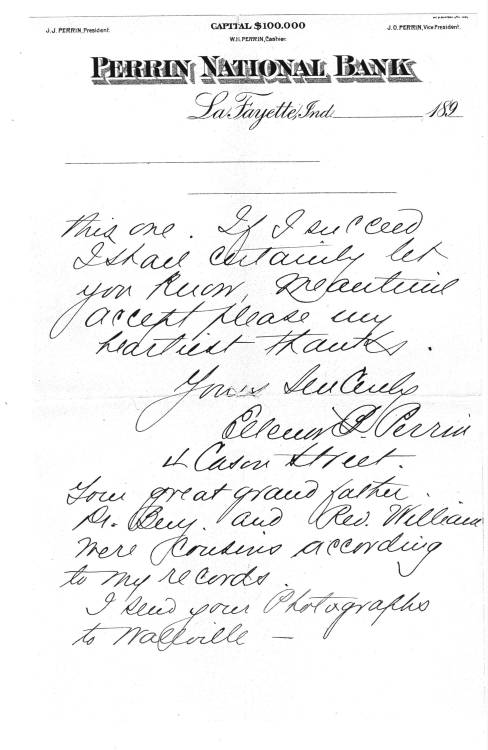 CAPITAL $100.000
J.J. PERRIN, President.
W.H. PERRIN, Cashier.
J.O. PERRIN, Vice President.
PERRIN NATIONAL BANK
LaFayette, Ind. 189
this one. If I succeed
I shall certainly let
you know, Meantime
accept please my
heartiest thanks.
Yours Sincerely
Eleenor P. Perrin
4 Cason Street.
Your great grand father.
Dr. Benj. and Rev. William
were cousins according
to my records.
I send your Photographs
to Wallville —